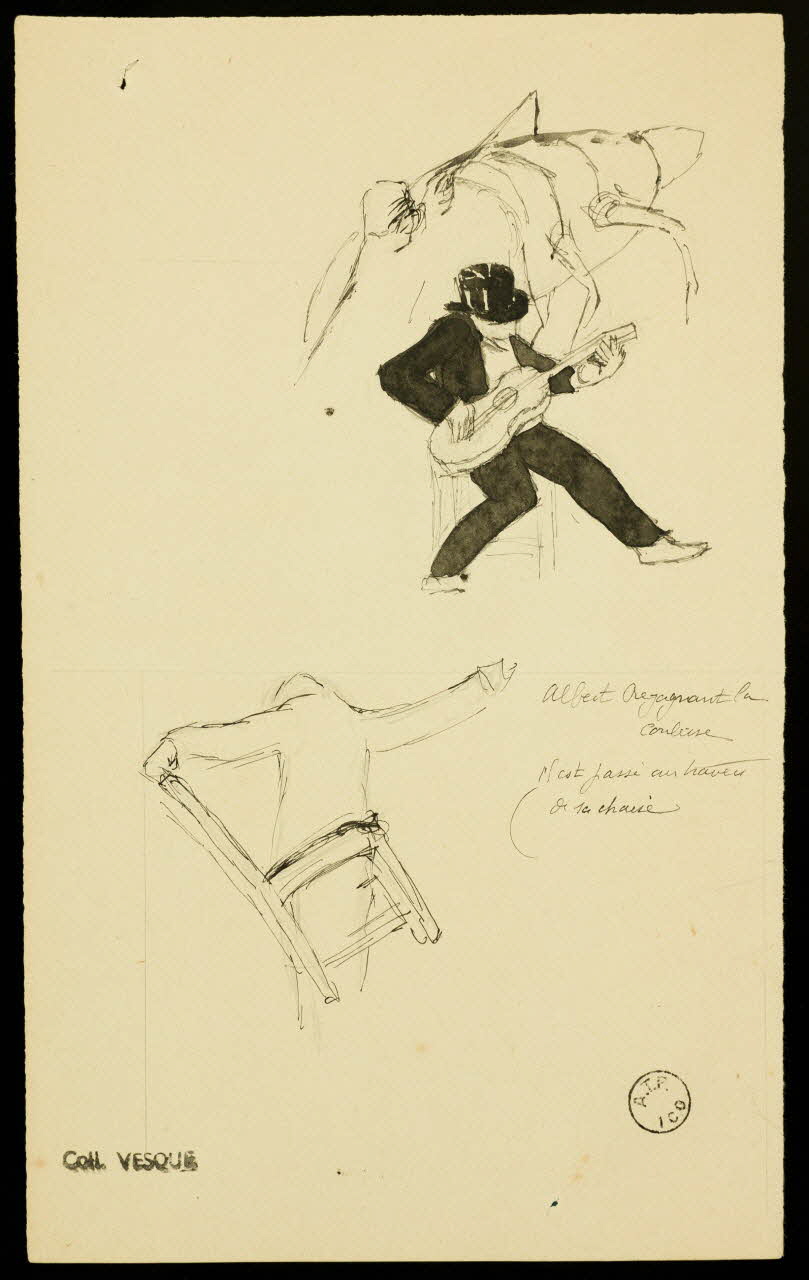 Albert regagnant la
coulisse
il est passé au travers
de sa chaise
A.T.P.
ICO
Coll. VESQUE